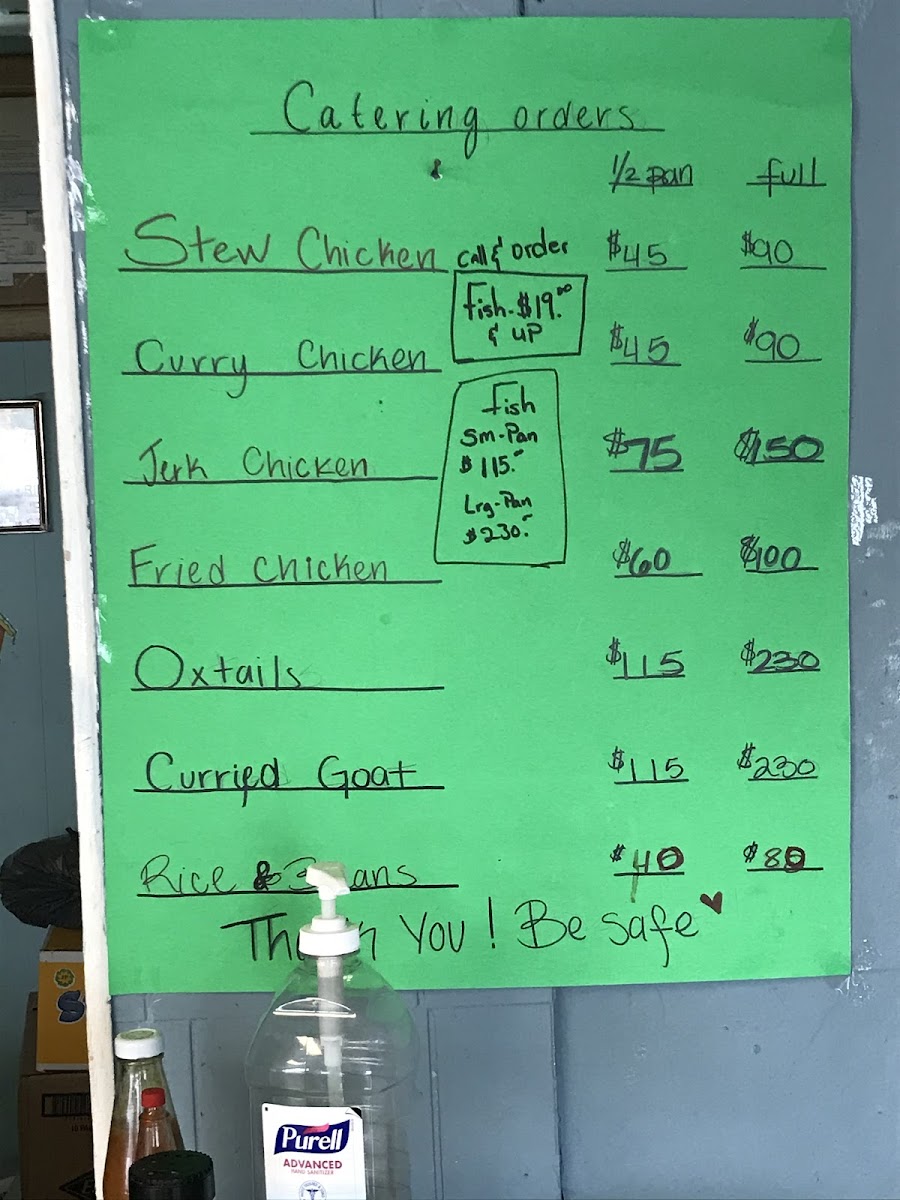 Catering orders
1/2 pan full
Stew Chicken $45 $90
Call & order
Fish - $19.00
& up
Curry Chicken $45 $90
Fish
Sm-Pan
$115.-
Lrg-Pan
$230.-
Jerk Chicken $75 $150
Fried Chicken $60 $100
Oxtails $115 $230
Curried Goat $115 $230
Rice & $40 $80
You! Be safe ♥
Purell
ADVANCED
HAND SANITIZER
S